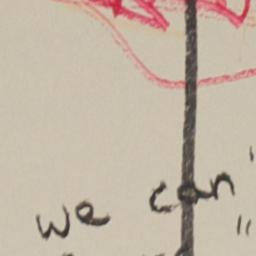 we can'
"